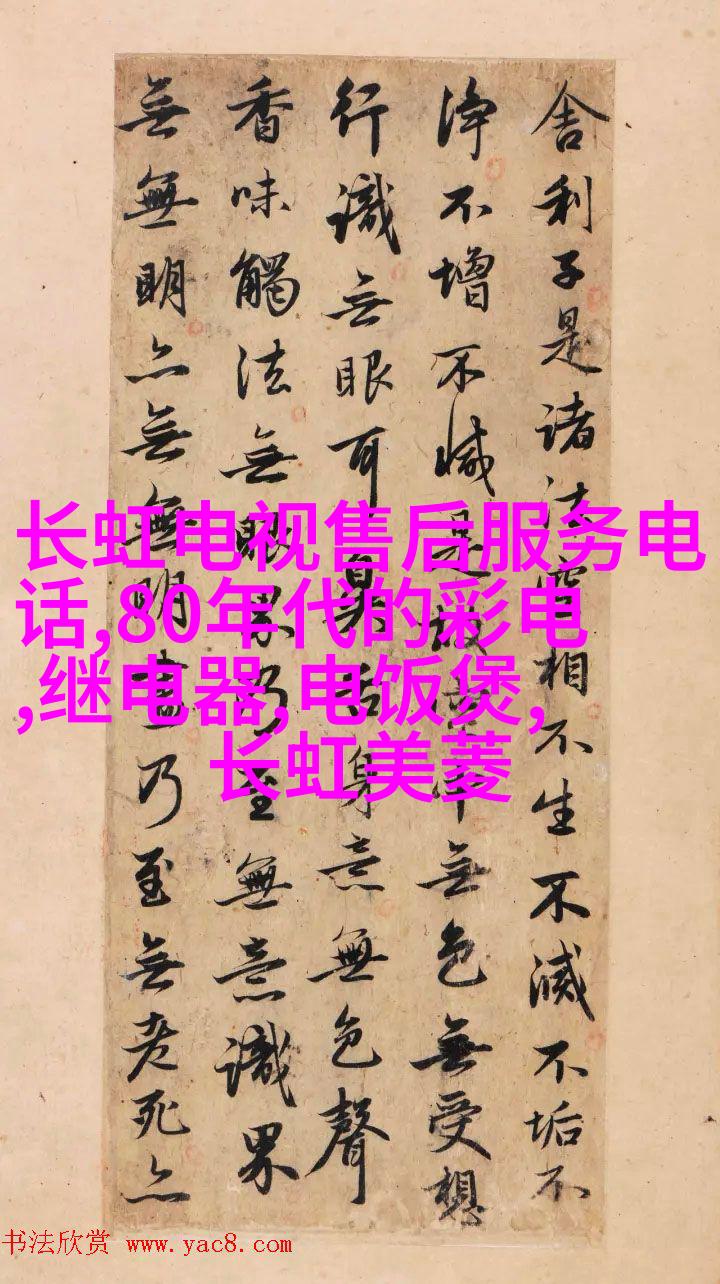 舍利子是诸法空相不生不滅不垢不
净不增不減是故空中無色無受想
行識无眼耳鼻舌身意無色聲
香味觸法無眼界乃至無意識界
無無明亦無無明盡乃至無老死亦
长虹电视售后服务电
话,80年代的彩电
,继电器,电饭煲,
长虹美菱
书法欣赏 www.yac8.com